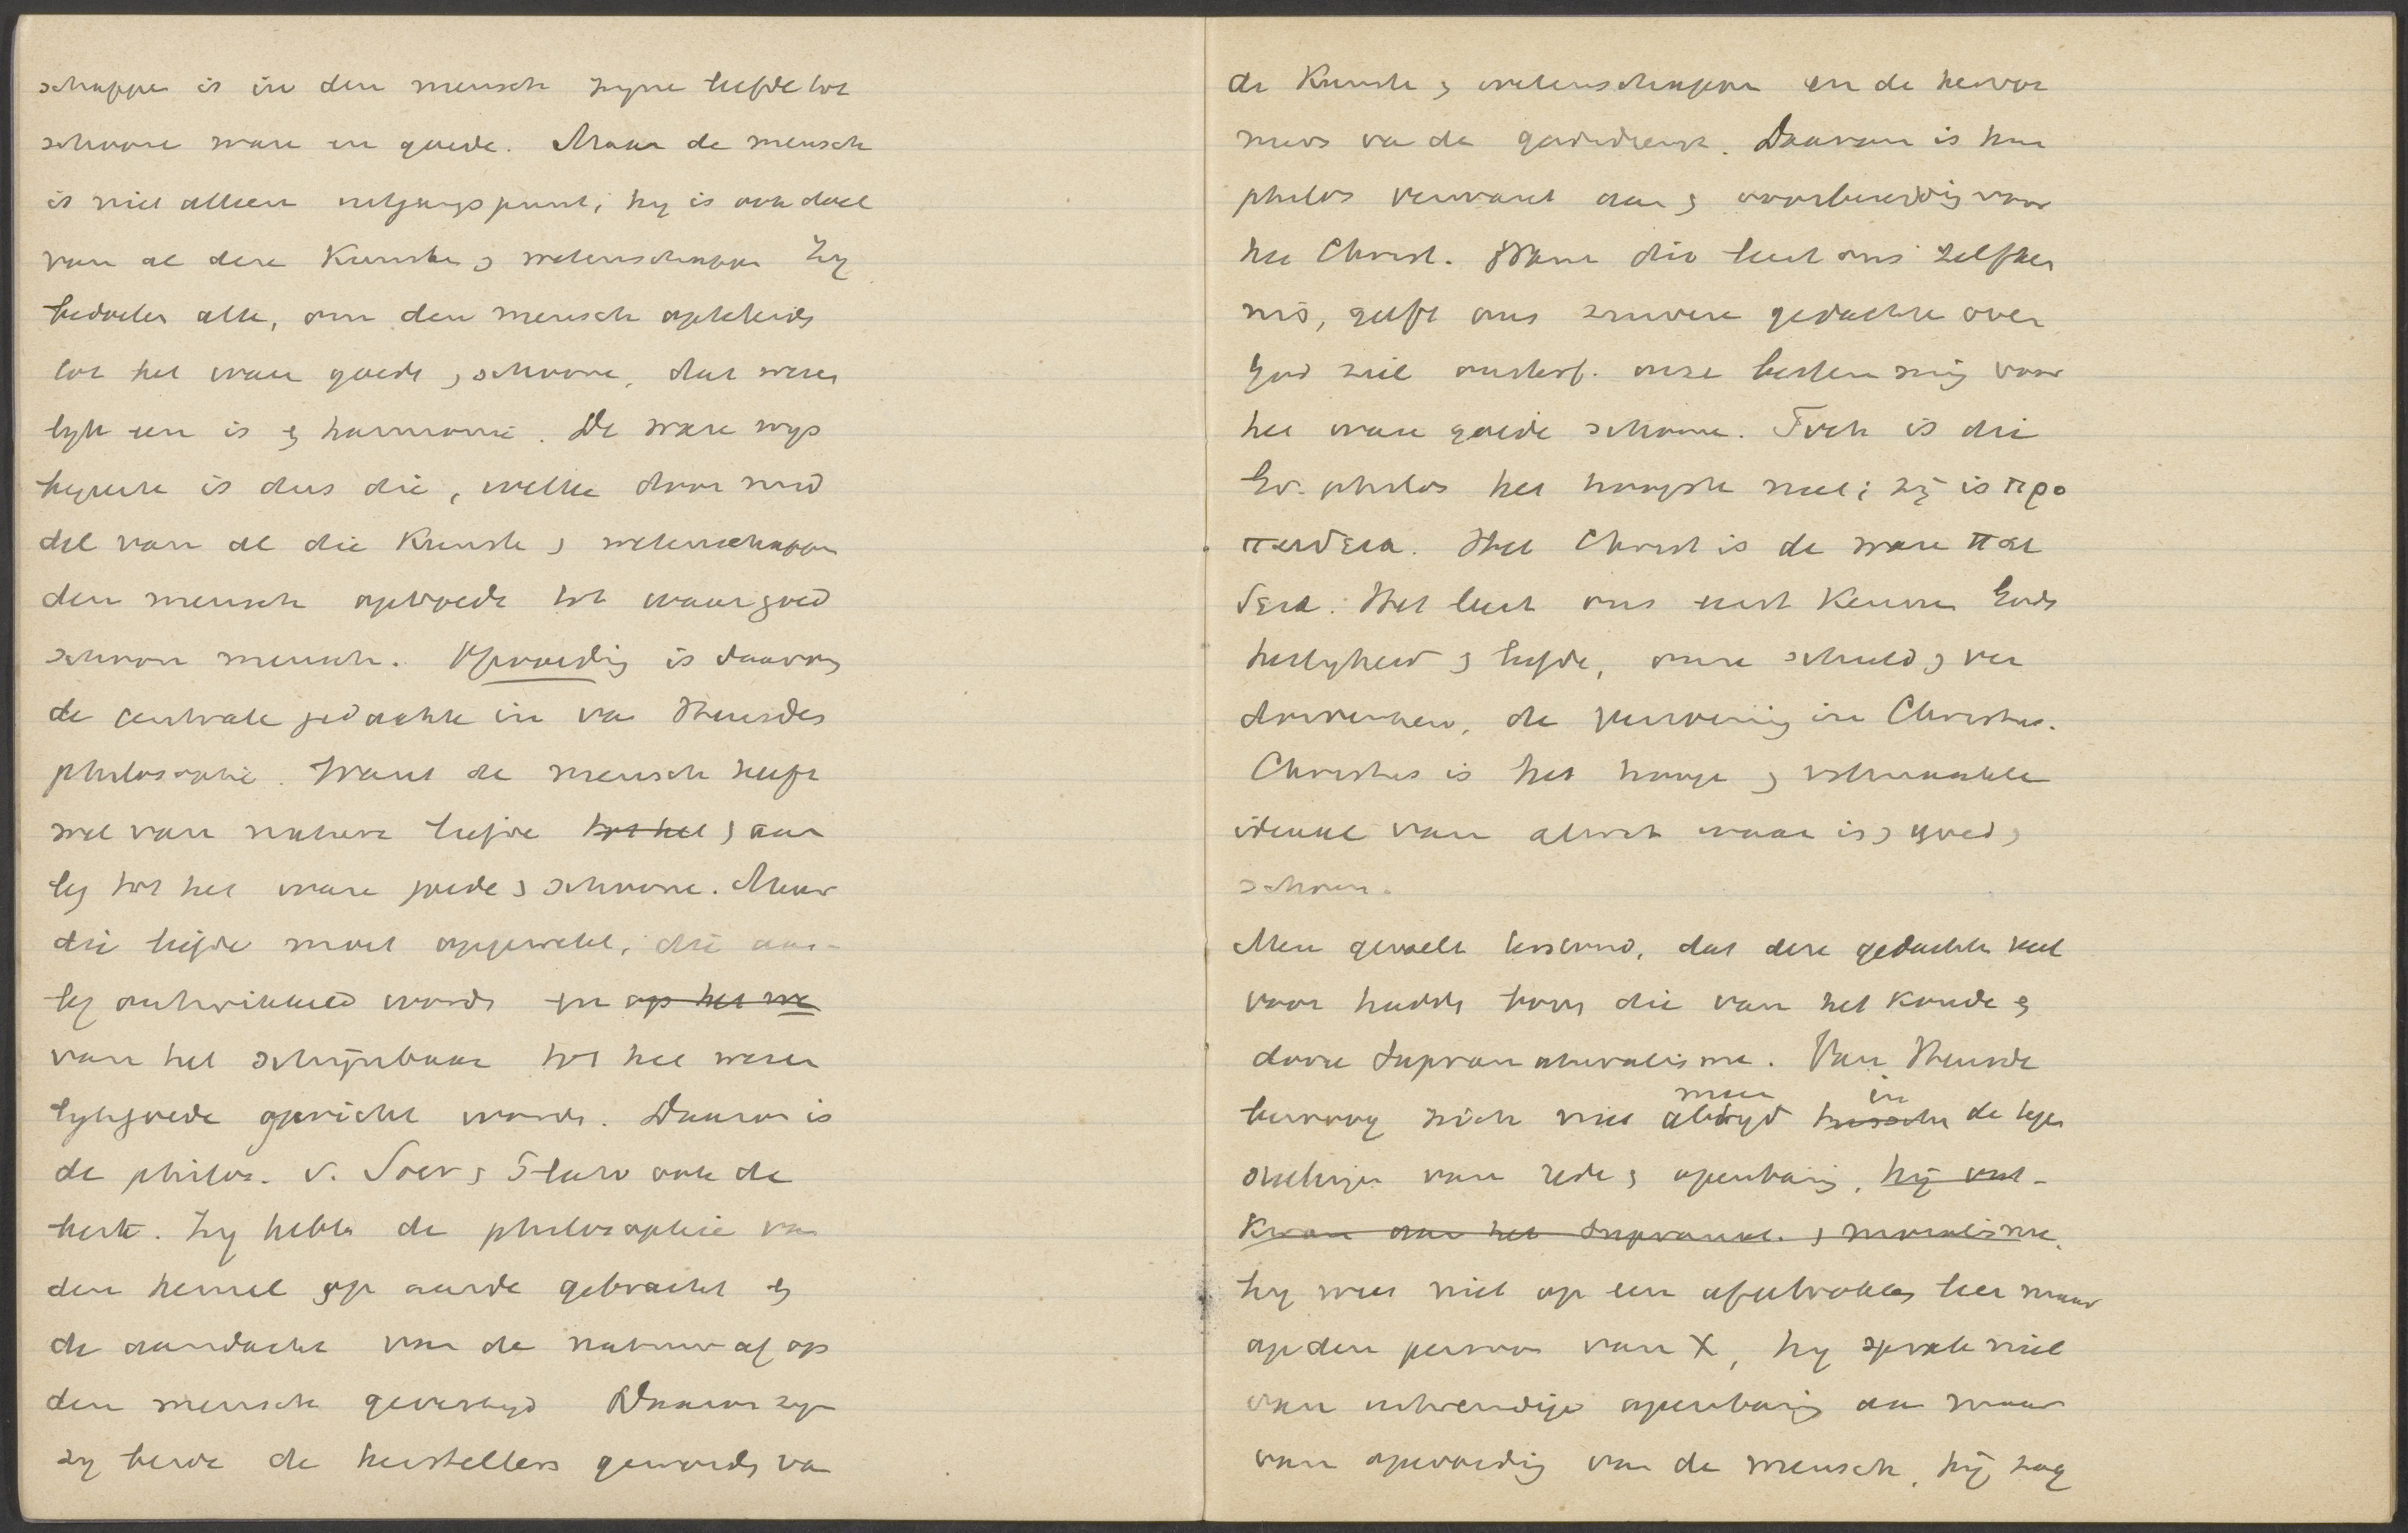 schappen is in den mensch zyne liefde tot
schoone ware en goede. Maar de mensch
is niet alleen uitgangspunt, hy is ook doel
van al deze Kunsten & wetenschappen Zy
bedoelen alle, om den mensch opteleiden
tot het ware goede & schoone, dat wezen
lyk een is & harmonie. De ware wys
begeerte is dus die, welke door mid
del van al die Kunsten & wetenschappen
den mensch opvoede tot waar goed
schoon mensch. Opvoeding is daarom
de centrale gedachte in van Heusdes
philosophie. Want de mensch heeft
wel van nature liefde tot het & aan
leg tot het ware goede & schoone. Maar
die liefde moet opgewekt, die aan-
leg ontwikkeld worden en op het we
van het schijnbaar tot het wezen
lykgoede gericht worden. Daarom is
de philos. v. Socr & Plato ook de
beste. Zy hebben de philosophie van
den hemel op aarde gebracht &
de aandacht van de natuur af op
den mensch gevestigd Daarom zyn
zy beide de herstellers geworden van
de Kunsten & wetenschappen en de hervor
mers van de godsdienst. Daarom is hun
philos verwant aan & voorbereiding voor
het Christ. Want die leert ons zelfken
nis, geeft ons zuivere gedachten over
God ziel onsterf. onze bestemming voor
het ware goede schoone. Toch is die
Gr. philos het hoogste niet; zij is προ
παιδεια. Het Christ is de ware παι
δεια. Het leert ons eerst Kennen Gods
heiligheid & liefde, onze schuld & ver
dorvenheid, de verzoening in Christus.
Christus is het hooge & volmaakte
ideaal van alwat waar is & goed &
schoon.
Men gevoelt terstond, dat deze gedachten veel
voor hadden boven die van het koude &
dorre Supranaturalisme. Van Heusde
bewoog zich niet altijd meer tusschen in de tegen
stellingen van rede & openbaring, hij ont-
kwam aan het Supranat. & moralisme.
hy wees niet op een afgetrokken leer maar
op den persoon van X, hy sprak niet
van uitwendige openbaring aan maar
van opvoeding van de mensch, hij zag